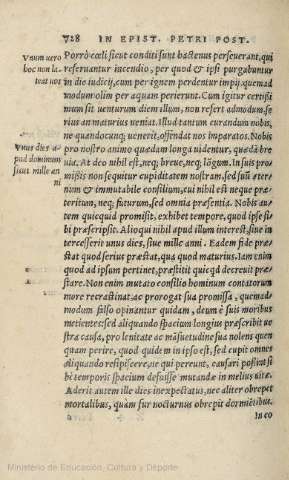 728 IN EPIST. PETRI POST.
Vnum uero
hoc non la-
teat uos
Porrò cœli sicut conditi sunt hactenus perseuerant, qui
reseruantur incendio, per quod & ipsi purgabuntur
in die iudicij, cum per ignem perdentur impij, quemad
modum olim per aquam perierunt. Cum igitur certißi
mum sit uenturum diem illum, non refert admodum, se
rius an maturius ueniat. Illud tantum curandum nobis,
ne quandocunq; uenerit, offendat nos imparatos. Nobis
Vnus dies a-
pud dominum
sicut mille an
ni
pro nostro animo quædam longa uidentur, quædã bre
uia. At deo nihil est, neq; breue, neq; lõgum. In suis pro
mißis non sequitur cupiditatem nostram, sed suũ æter
num & immutabile consilium, cui nihil est neque præ
teritum, neq; futurum, sed omnia præsentia. Nobis au
tem quicquid promisit, exhibet tempore, quod ipse si
bi præscripsit. Alioqui nihil apud illum interest, siue in
tercesserit unus dies, siue mille anni. Eadem fide præ
stat quod serius præstat, qua quod maturius. Iam enim
quod ad ipsum pertinet, præstitit quicqd decreuit præ
stare. Non enim mutato consilio hominum contatorum
more recrastinat, ac prorogat sua promissa, quemad
modum falso opinantur quidam, deum è suis moribus
metientes: sed aliquando spacium longius præscribit ue
stra causa, pro lenitate ac mãsuetudine sua nolens quen
quam perire, quod quidem in ipso est, sed cupit omnes
aliquando resipiscere, ne qui pereunt, causari poßint si
bi temporis spacium defuisse mutandæ in melius uitæ.
Aderit autem ille dies inexpectatus, nec aliter obrepet
mortalibus, quàm fur nocturnus obrepit dormiẽtibus.
In eo
Ministerio de Educación, Cultura y Deporte